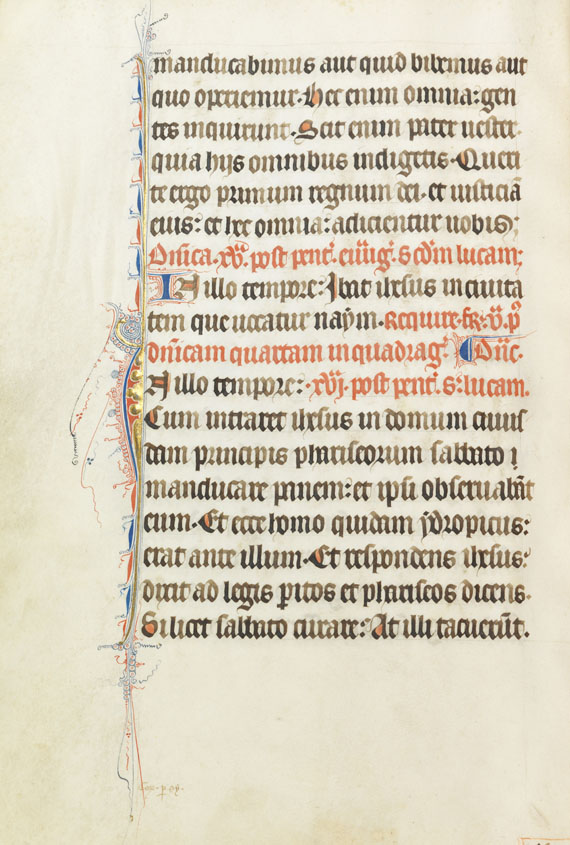 manducabimus aut quid bibemus aut
quo operiemur. Hec enim omnia: gen
tes inquirunt. Scit enim pater uester.
quia hijs omnibus indigetis. Queri
te ergo primum regnum dei. et iusticiā
eius: et hec omnia: adicientur uobis;
Dn̄ica. xv. post pent̄. euāg. s̄ cdm̄ lucam;
In illo tempore: Ibat ihesus in ciuita
tem que uocatur naȳm. Require. fr̄. v. p̄
dn̄icam quartam in quadraḡ. Dn̄c.
In illo tempore: xvj. post pent̄. s. lucam.
Cum intraret ihesus in domum cuius
dam principis phariseorum sabbato
manducare panem: et ipsi obseruabāt
eum. Et ecce homo quidam ydropicus:
erat ante illum. Et respondens ihesus:
dixit ad legis p̄itos et phariseos dicens.
Si licet sabbato curare: At illi tacuerūt.